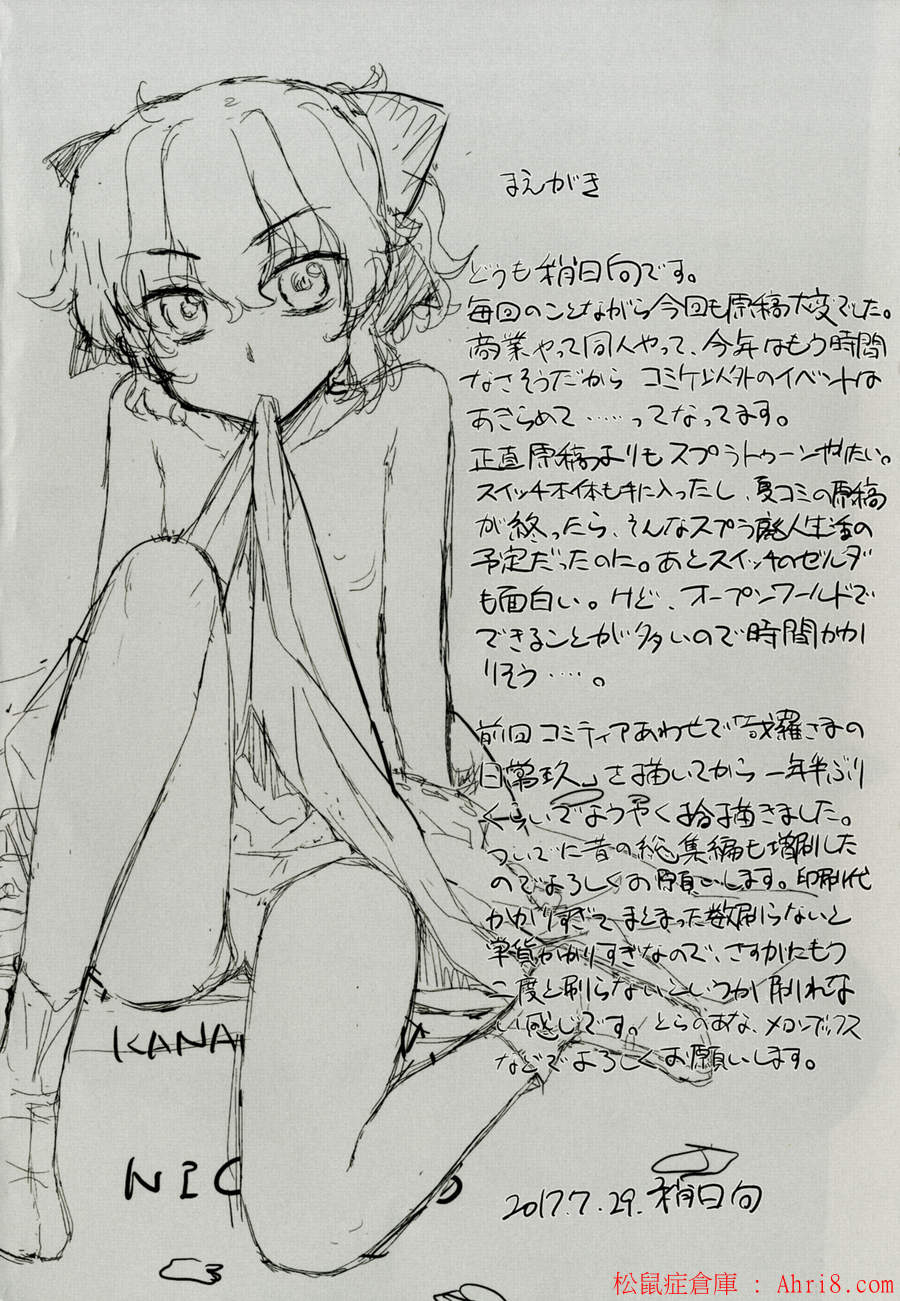 まえがき
どうも梢日向です。
毎回のことながら今回も原稿大変でした。
商業やって同人やって、今年はもう時間
なさそうだから コミケ以外のイベントは
あきらめて……ってなってます。
正直原稿よりもスプラトゥーンやりたい。
スイッチ本体も手に入ったし、夏コミの原稿
が終ったら、そんなスプラ廃人生活の
予定だったのに。あとスイッチのゼルダ
も面白い。けど、オープンワールドで
できることが多いので時間かか
りそう……。
前回コミティアあわせで「哉羅さまの
日常玖」を描いてから 一年半ぶり
くらいでようやく拾描きました。
ついでに昔の総集編も増刷した
のでよろしくお願いします。印刷代
かかりすぎてまとまった数刷らないと
単貨かかりすぎなので、さすがにもう
二度と刷らないというか刷れな
い感じです。とらのあな、メロンブックス
などでよろしくお願いします。
KANA
NIC
2017.7.29.梢日向
松鼠症倉庫 : Ahri8.com